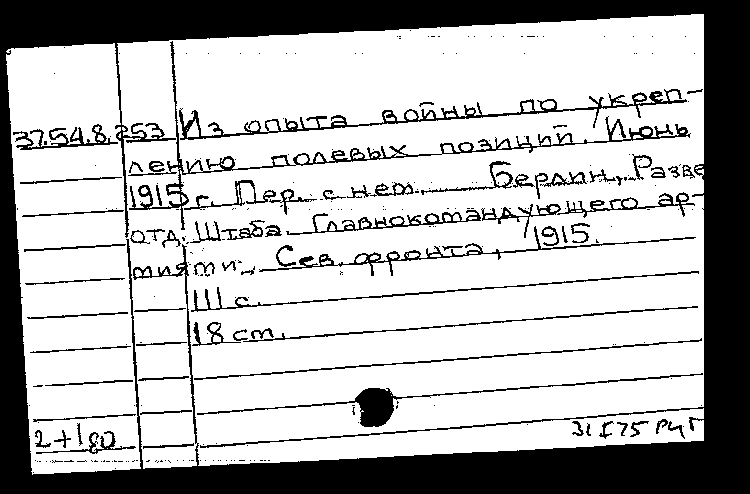 37.54.8.253 Из опыта войны по укреп-
лению полевых позиций. Июнь
1915 г. Пер. с нем. Берлин, Разве
отд. Штаба. Главнокомандующего ар-
миями. Сев. фронта, 1915.
111 с.
18 cm.
2+1 80 31 I 75 РчГ